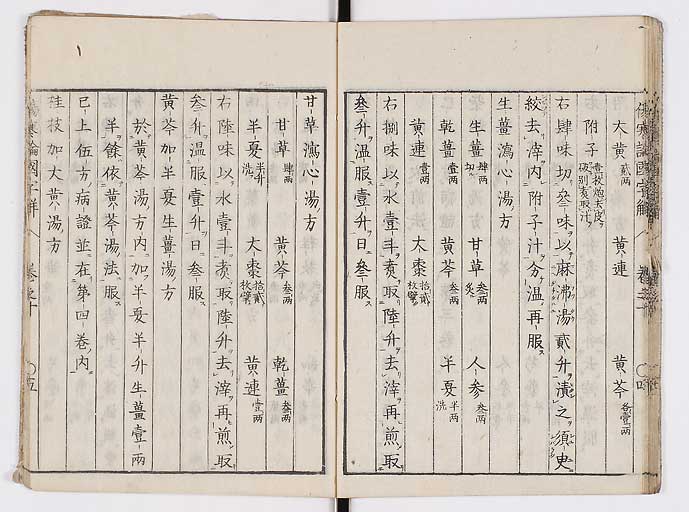 大黄貳兩　黄連　黄芩各壹兩
附子壹枚炮去皮破別煮取汁
右肆味切叄味以麻沸湯貳升漬之須臾
絞去滓内附子汁分温再服ス
生薑瀉心湯方
生薑肆兩切　甘草叄兩炙　人参叄兩
乾薑壹兩　黄芩叄兩　半夏半兩洗
黄連壹兩　大棗拾貳枚擘
右捌味以水壹斗煮取陸升去滓再煎取
叄升温服壹升日叄服
傷寒論國字解　卷之十　〇四
甘草瀉心湯方
甘草肆兩　黄芩叄兩　乾薑叄兩
半夏半升洗　大棗拾貳枚擘　黄連壹兩
右陸味以水壹斗煮取陸升去滓再煎取
叄升温服壹升日叄服
黄芩加半夏生薑湯方
於黄芩湯方内加半夏半升生薑壹兩
半餘依黄芩湯法服ス
已上伍方病證並在第四卷内
桂枝加大黄湯方
傷寒論國字解　卷之十　〇五